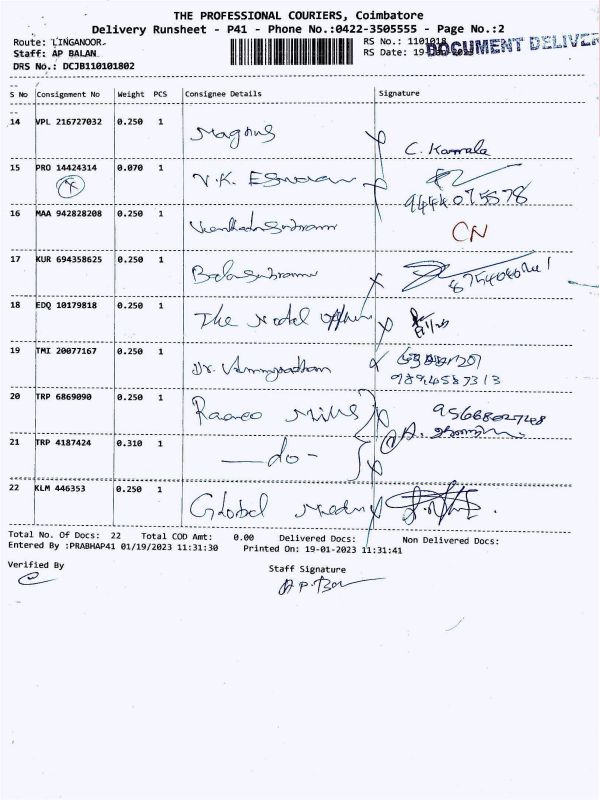 THE PROFESSIONAL COURIERS, Coimbatore
Delivery Runsheet - P41 - Phone No.:0422-3505555 - Page No.:2
Route: LINGANOOR
RS No.: 1101018
DOCUMENT DELIVER
Staff: AP BALAN
RS Date: 19-Jan-2023
DRS No.: DCJB110101802
S No Consignment No Weight PCS Consignee Details Signature
14 VPL 216727032 0.250 1 Magnus C. Kamala
15 PRO 14424314 0.070 1 V.K. Eswaran
9444075578
16 MAA 942828208 0.250 1 CN
17 KUR 694358625 0.250 1 Balasubramani
18 EDQ 10179818 0.250 1 The Nodal Officer
19 TMI 20077167 0.250 1 Dr.
9894587313
20 TRP 6869090 0.250 1 Raaneo Mills 9566802748
21 TRP 4187424 0.310 1 —do-
22 KLM 446353 0.250 1 Global
Total No. Of Docs: 22 Total COD Amt: 0.00 Delivered Docs: Non Delivered Docs:
Entered By :PRABHAP41 01/19/2023 11:31:30 Printed On: 19-01-2023 11:31:41
Verified By Staff Signature
A P. Bal